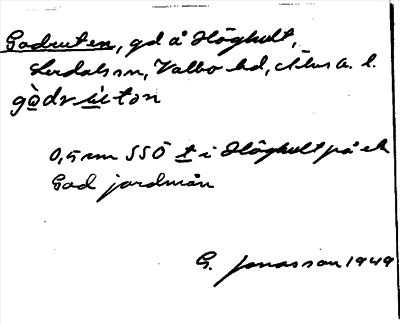 Godruten, gd å Höghult,
Lerdals sn, Valbo hd, Älvsb. l.
gòdrùton
0,5 km SSÖ t i Höghult på ek
God jordmån
G. Jonasson 1949